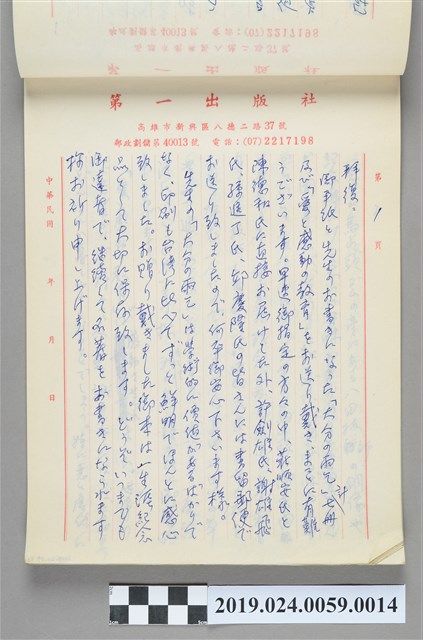 第一出版社
高雄市新興區八德二路37號
郵政劃儲第40013號 電話：(07)2217198
第 1 頁
拝復、
御手紙と先生のお書きになった「大分の雨乞」七冊
及び「愛と感動の教育」をお送り戴き、まことに有難
うございます。早速御指定の方々の中、莊順安氏と
陳漢和氏に直接お届けした外、許劍雄氏、謝雄飛
氏、孫進丁氏、邱慶隆氏の皆さんには書留郵便で
お送り致しましたので、何卒御安心下さいます様。
先生の「大分の雨乞」は学術的に價值があるばかりで
なく、印刷も台湾に比べてずっと鮮明でほんとに感心
致しました。お贈り戴きました御本は一生涯の紀念
品として大切に保存致します。どうぞ、いつまでも
御達者で、続續として名著をお書きになられます
様お祈り申し上げます。
計
中華民國 年 月 日
2019.024.0059.0014